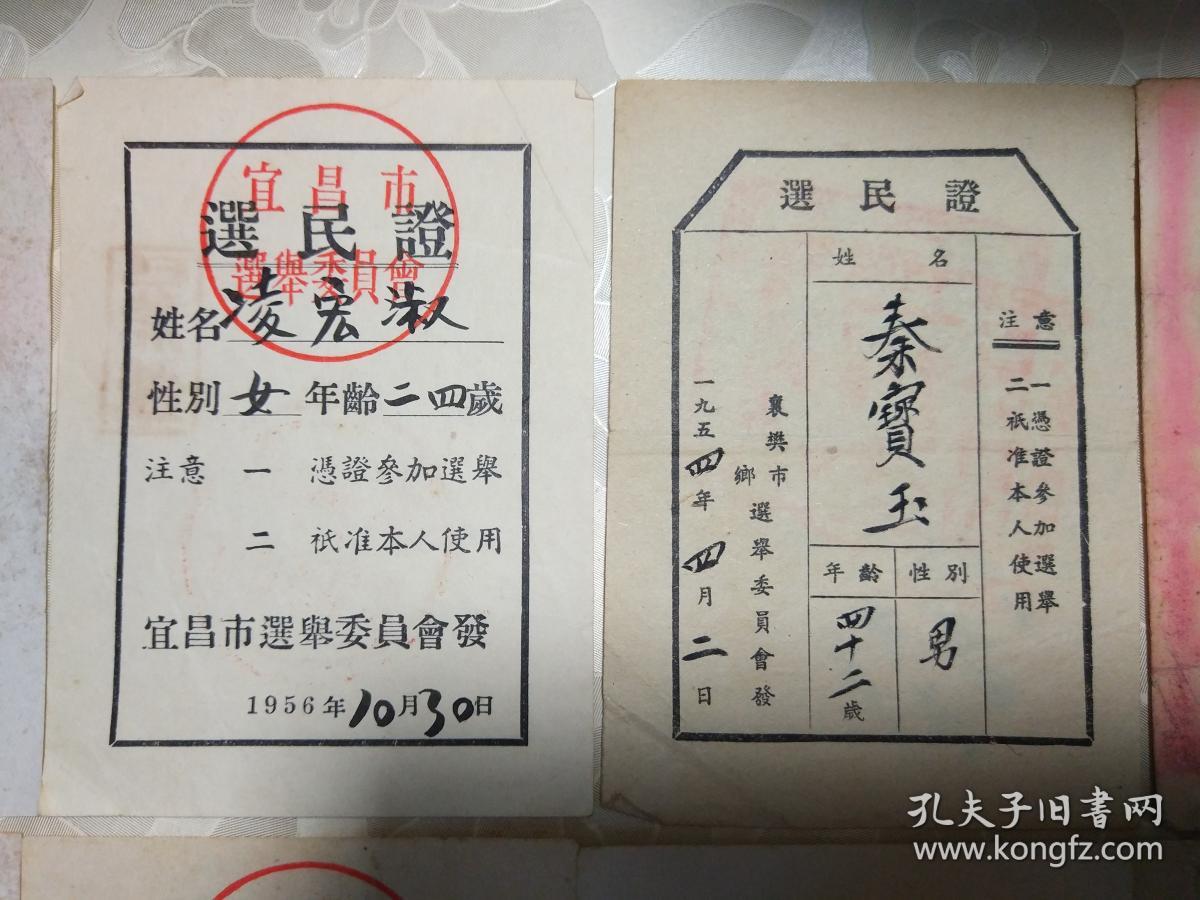 宜昌市
選民證
選舉委員會
姓名凌宏淑
性別女年齡二四歲
注意 一 憑證參加選舉
二 祇准本人使用
宜昌市選舉委員會發
1956年10月30日
選民證
注意
一憑證參加選舉
二祇准本人使用
姓名
秦寶玉
性別
男
年齡
四十二歲
襄樊市
鄉選舉委員會發
一九五四年四月二日
孔夫子旧书网
www.kongfz.com